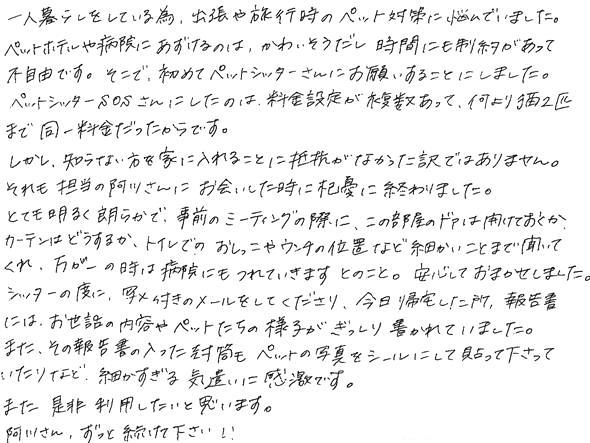 一人暮らしをしている為、出張や旅行時のペット対策に悩んでいました。
ペットホテルや病院にあずけるのは、かわいそうだし 時間にも制約があって
不自由です。そこで、初めてペットシッターさんにお願いすることにしました。
ペットシッターSOSさんにしたのは、料金設定が複数あって、何より猫2匹
まで同一料金だったからです。
しかし、知らない方を家に入れることに抵抗がなかった訳ではありません。
それも担当の阿川さんに お会いした時に杞憂に終わりました。
とても明るく朗らかで、事前のミーティングの際に、この部屋のドアは開けておくか、
カーテンはどうするか、トイレでの おしっこやウンチの位置など細かいことまで聞いて
くれ、万が一の時は病院にもつれていきます とのこと。安心しておまかせしました。
シッターの度に、写メ付きのメールをしてくださり、今日帰宅した所、報告書
には、お世話の内容やペットたちの様子がぎっしり書かれていました。
また、その報告書の入った封筒も ペットの写真をシールにして貼って下さって
いたりなど、細かすぎる気遣いに感激です。
また 是非 利用したいと思います。
阿川さん、ずっと続けて下さい!!